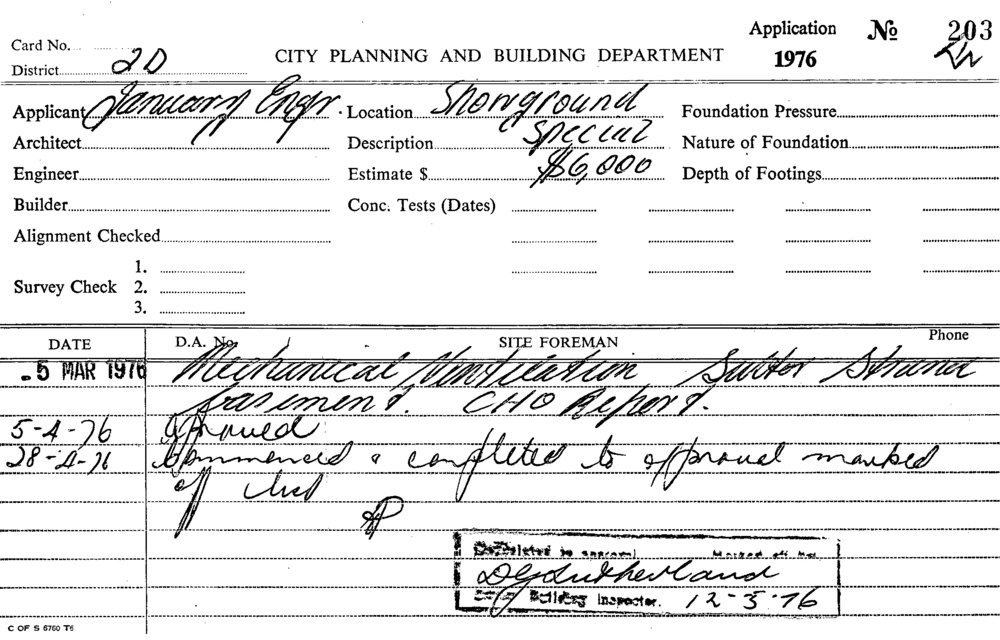 Application № 203
Card No.
CITY PLANNING AND BUILDING DEPARTMENT
1976
District 2D
Applicant January Engr. Location Showground Foundation Pressure
Architect Description Special Nature of Foundation
Engineer Estimate $ $6,000 Depth of Footings
Builder Conc. Tests (Dates)
Alignment Checked
1.
Survey Check 2.
3.
DATE D.A. No. SITE FOREMAN Phone
5 MAR 1976 Mechanical Ventilation Suttor
basement. CHO Report.
5-4-76 approved
28-4-76 Commenced & completed to approval marked
off
Completed to approval Marked off
DG Sutherland
Building Inspector. 12-5-76
C OF S 6760 T6